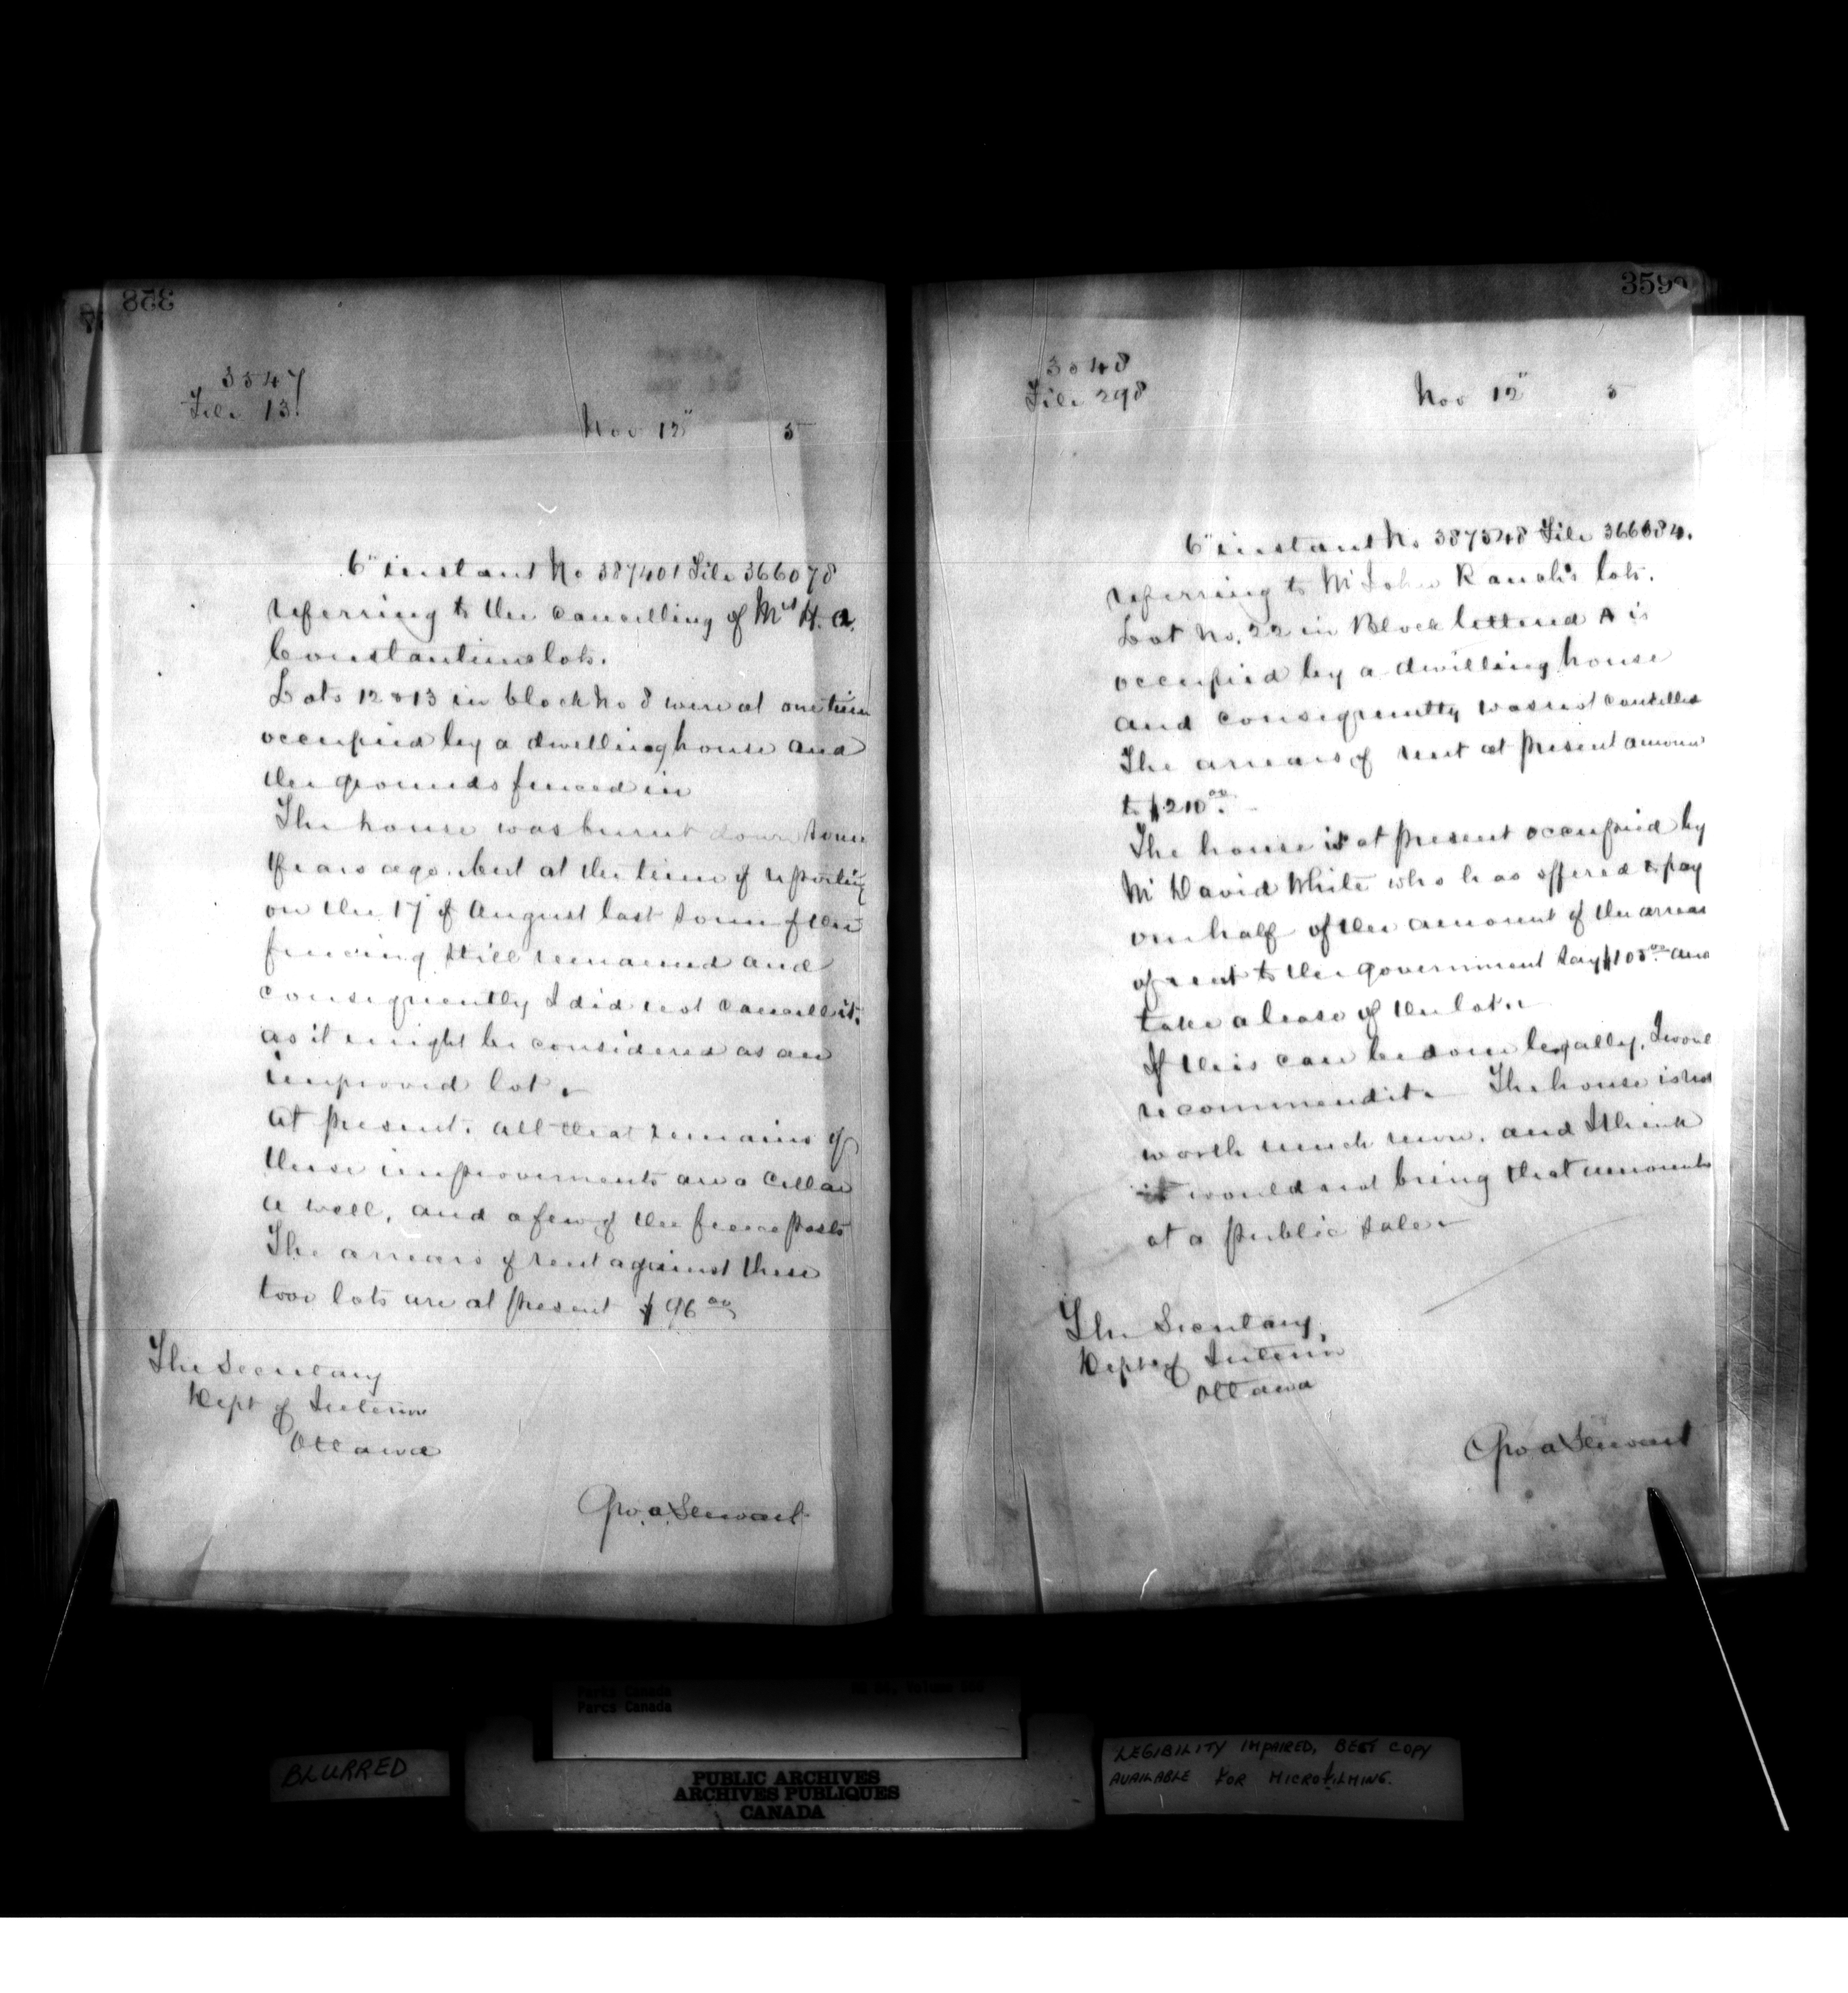 358
3547
File 13
Nov 12" 5
6" instant No 387401 File 366078
referring to the cancelling of Mrs H. A.
Constantines lots.
Lots 12 & 13 in block No 8 were at one time
occupied by a dwelling house and
the grounds fenced in
The house was burnt down some
years ago. but at the time of reporting
on the 17" of August last some of the
fencing still remained and
consequently I did not cancell it.
as it might be considered as an
improved lot.
At present. all that remains of
these improvements are a cellar
a well, and a few of the fence posts
The arrears of rent against these
two lots are at present $96.00
The Secretary
Dept of Interior
Ottawa
Geo. A. Stewart
359
3548
File 298
Nov 12" 5
6" instant No 387548 File 366084.
referring to Mr John lots.
Lot No. 22 in Block lettered A is
occupied by a dwelling house
and consequently was not cancelled
The arrears of rent at present amount
to $210.00
The house is at present occupied by
Mr David White who has offered to pay
one half of the amount of the arrears
of rent to the government say $105.00 and
take a lease of the lot.
If this can be done legally, I woul
recommend it. The house is not
worth much more, and I think
it would not bring that amount
at a public sale.
The Secretary,
Dept of Interior
Ottawa
Geo A Stewart
Parks Canada
Parcs Canada
BLURRED
PUBLIC ARCHIVES
ARCHIVES PUBLIQUES
CANADA
LEGIBILITY IMPAIRED, BEST COPY
AVAILABLE FOR MICROFILMING.